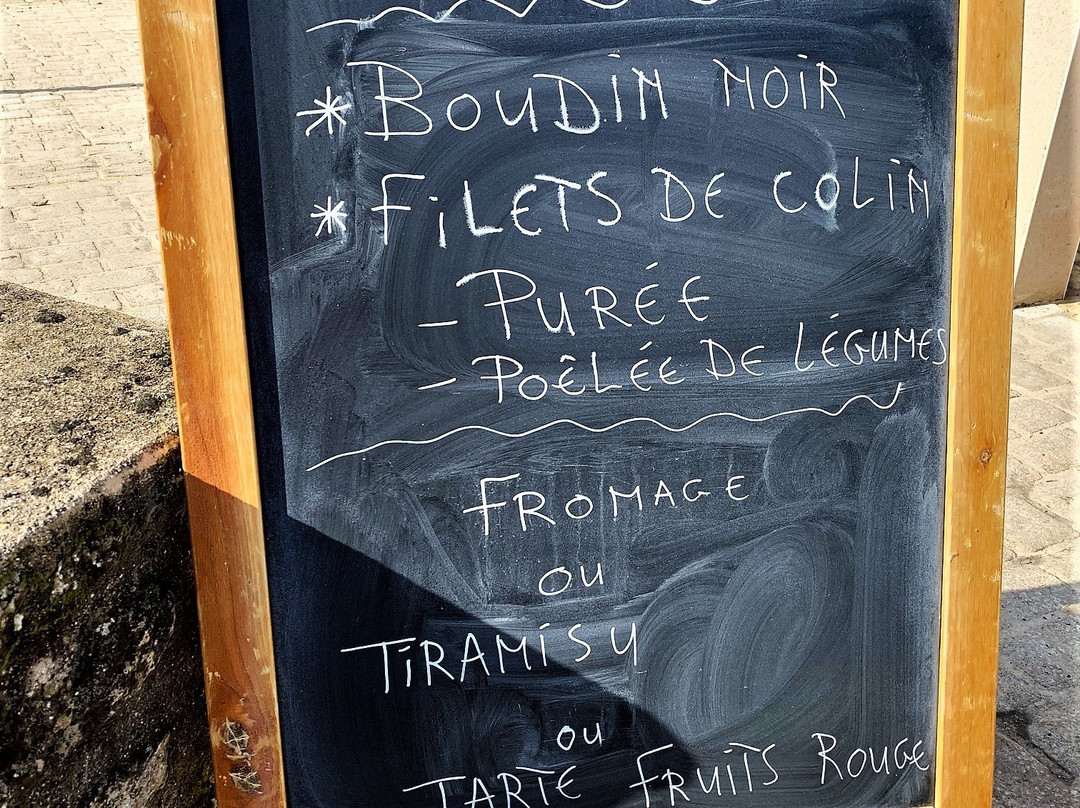 * BOUDIN NOIR
* FILETS DE COLIN
- PURÉE
- POÊLÉE DE LÉGUMES
FROMAGE
OU
TIRAMISU
OU
TARTE FRUITS ROUGE